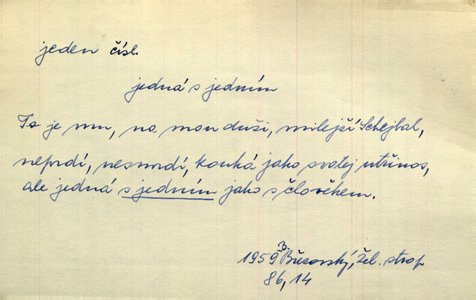 jeden čísl.
jedná s jedním
To je mu, na mou duši, milejší Schejbal,
neprdí, nesmrdí, kouká jako svatej utřinos,
ale jedná s jedním jako s člověkem.
1959 B. Březovský, Žel. strop
86, 14